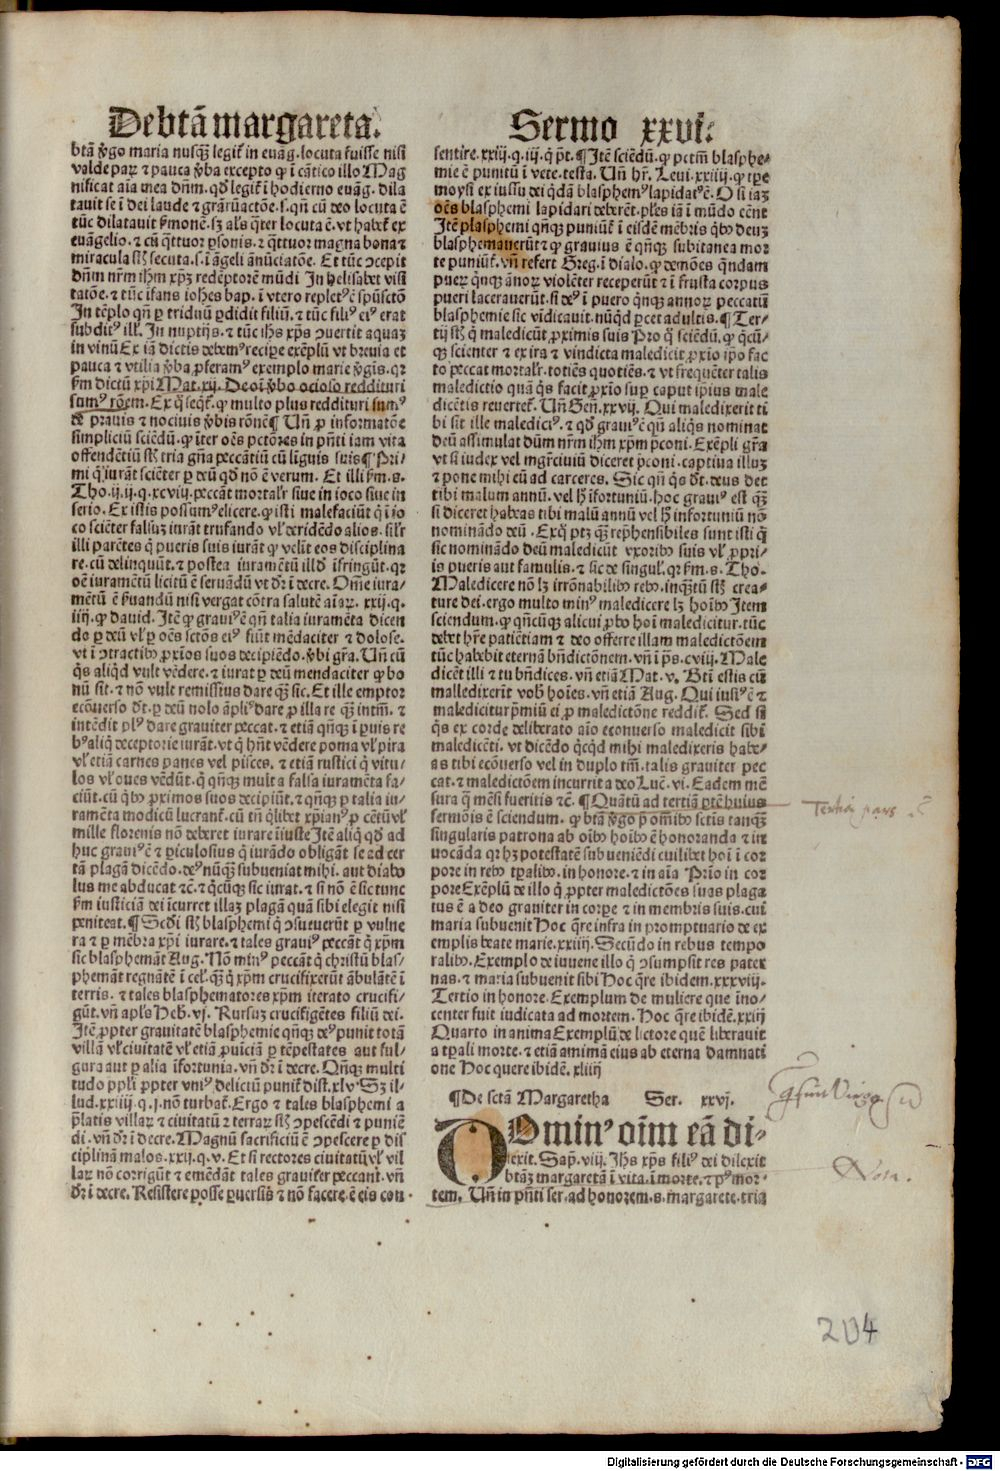 De btā margareta. Sermo xxvi.
btā v̓go maria nusq̄ȝ legit̉ in evāg. locuta fuisse nisi
valde paꝝ ⁊ pauca v̓ba excepto ꝙ ī cātico illo Mag
nificat aīa mea dn̄m. qd̓ legit̉ ī hodierno evāg. dila
tavit se ī dei laude ⁊ grāꝝactōe. s. qn̄ cū deo locuta ē
tūc dilatavit s̓monē. sȝ al̓s q̄ter locuta ē. vt habet̉ ex
evāgelio. ⁊ cū q̄ttuor ꝑsonis. ⁊ q̄ttuor magna bona ⁊
miracula sūt secuta. s. ī āgeli ānūciatōe. Et tūc ꝯcepit
dn̄m nr̄m ihm̄ xp̄ȝ redēptorē mūdi In helisabet visi
tatōe. ⁊ tūc īfans ioh̄es bap. ī vtero replet⁹ ē spūsctō
In tēplo qn̄ ꝑ triduū ꝑdidit filiū. ⁊ tūc fili⁹ ei⁹ erat
subdit⁹ ill̓. In nuptijs. ⁊ tūc ihs xp̄s ꝯuertit aquaȝ
in vinū Ex iā dictis debem⁹ recip̄e exēplū vt brevia et
pauca ⁊ vtilia v̓ba ꝓferam⁹ exemplo marie v̓gīs. qꝛ
s̓m dictū xp̄i Mat. xij. De oī v̓bo ocioso reddituri
sum⁹ rōem. Ex q̄ seq̄t̉. ꝙ multo plus reddituri sum⁹
de pravis ⁊ nocivis v̓bis rōnē ¶ Vn̄ ꝓ informatōe
simpliciū sciēdū. ꝙ īter oēs pctōres in pn̄ti iam vita
offendētiū sūt tria gn̄a peccātiū cū līguis suis ¶ Pri
mi q̄ iurāt sciēter ꝑ deū qd̓ nō ē verum. Et illi s̓m. s.
Tho. ij. ij. q. xcviij. peccāt mortal̓r siue in ioco siue in
serio. Ex istis possum⁹ elicere. ꝙ isti malefaciūt q̄ ī io
co sciēter falsuȝ iurāt trufando vl̓ deridēdo alios. sil̓r
illi parētes q̄ pueris suis iurāt ꝙ velīt eos disciplina
re. cū delinquūt. ⁊ postea iuramētū illd̓ īfringūt. qꝛ
oē iuramētū licitū ē servādū vt dr̄ ī decre. Om̄e iura-
mētū ē s̓uandū nisi vergat cōtra salutē aīaꝝ. xxij. q.
iiij. ꝙ david. Itē ꝙ graui⁹ ē qn̄ talia iuramēta dicen
do ꝑ deū vl̓ ꝑ oēs sctōs ei⁹ fiūt mēdaciter ⁊ dolose.
vt ī ꝯtractibꝰ ꝓxīos suos decipiēdo. v̓bi gr̄a. Vn̄ cū
q̄s aliqd̓ vult vēdere. ⁊ iurat ꝑ deū mendaciter ꝙ bo
nū sit. ⁊ nō vult remissius dare q̄ȝ sic. Et ille emptor
ecōverso dt̄. ꝑ deū nolo āpli⁹ dare ꝓ illa re q̄ȝ intm̄. ⁊
intēdit pl⁹ dare graviter peccat. ⁊ etiā qn̄qȝ ī ꝑuis re
b⁹ aliq̄ deceptorie iurāt. vt q̄ hn̄t vēdere poma vl̓ pira
vl̓ etiā carnes panes vel pisces. ⁊ etiā rustici q̄ vitu-
los vl̓ oues vēdūt. q̄ qn̄qȝ multa falsa iuramēta fa-
ciūt. cū q̄bꝰ ꝓximos suos decipiūt. ⁊ qn̄qȝ ꝑ talia iu-
ramēta modicū lucrant̉. cū tn̄ q̄libet xp̄ian⁹ ꝓ cētū vl̓
mille florenis nō deberet iurare īiuste Itē aliq̄ qd̓ ad
huc graui⁹ ē ⁊ ꝑiculosius q̄ iurādo obligāt se ad cer
tā plagā dicēdo. de⁹ nūq̄ȝ subveniat mihi. aut diabo
lus me abducat ⁊c̄. ⁊ q̄cūqȝ sic iurat. ⁊ si nō ē sic tunc
s̓m iusticiā dei īcurret illaȝ plagā quā sibi elegit nisi
peniteat. ¶ Scd̓i sūt blasphemi q̄ ꝯsueuerūt ꝑ vulne
ra ⁊ ꝑ mēbra xp̄i iurare. ⁊ tales graui⁹ peccāt q̄ xp̄m
sic blasphemāt Aug. Nō min⁹ peccāt q̄ christū blas-
phemāt regnātē ī cel̓. q̄ȝ q̄ xp̄m crucifixerūt ābulātē ī
terris. ⁊ tales blasphematores xp̄m iterato crucifi-
gūt. vn̄ apl̓s Heb̓. vj. Rursuȝ crucifigētes filiū dei.
Itē ꝓpter gravitatē blasphemie qn̄qȝ de⁹ punit totā
villā vl̓ civitatē vl̓ etiā ꝓuīciā ꝑ tēpestates aut ful-
gura aut ꝑ alia īfortunia. vn̄ dr̄ ī decre. Qn̄qȝ multi
tudo pp̄li ꝓpter vni⁹ delictū punit̉ dist. xlv. Sȝ il-
lud. xxiiij. q. j. nō turbat̉. Ergo ⁊ tales blasphemi a
p̄latis villaꝝ ⁊ civitatū ⁊ terraꝝ sūt ꝯpescēdi ⁊ puniē
di. vn̄ dr̄ ī decre. Magnū sacrificiū ē ꝯpescere ꝑ dis
ciplinā malos. xxij. q. v. Et si rectores civitatū vl̓ vil
laꝝ nō corrigūt ⁊ emēdāt tales graviter peccant. vn̄
dr̄ ī decre. Resistere posse ꝑuersis ⁊ nō facere. ē eis con-
sentire. xxiij. q. iij. q̄ pt̄. ¶ Itē sciēdū. ꝙ pctm̄ blasphe-
mie ē punitū ī vete. testa. Vn̄ hr̄. Levi. xxiiij. ꝙ tp̄e
moysi ex iussu dei q̄dā blasphem⁹ lapidat⁹ ē. O si iaȝ
oēs blasphemi lapidari deberēt. pl̓es iā ī mūdo eēnt
Itē plasphemi qn̄qȝ puniūt̉ ī eisdē mēbris q̄bꝰ deuȝ
blasphemauerūt ⁊ ꝙ grauius ē qn̄qȝ subitanea mor
te puniūt̉. vn̄ refert Greg. ī dialo. ꝙ demōes q̄ndam
pueꝝ q̄nqȝ ānoꝝ violēter receperūt ⁊ ī frusta corpus
pueri laceraverūt. si de⁹ ī puero q̄nqȝ annoꝝ peccatū
blasphemie sic vīdicavit. nūqd̓ ꝑcet adultis. ¶ Ter-
tij sūt q̄ maledicūt ꝓximis suis Pro q̄ sciēdū. ꝙ q̄cū-
qȝ scienter ⁊ ex ira ⁊ vindicta maledicit ꝓxīo ip̄o fac
to peccat mortal̓r. totiēs quotiēs. ⁊ vt frequēter talis
maledictio quā q̄s facit ꝓxīo suꝑ caput ip̄ius male
dicētis revertet̉. Vn̄ Gen̄. xxvij. Qui maledixerit ti
bi sit ille maledict⁹. ⁊ qd̓ graui⁹ ē qn̄ aliq̄s nominat
deū assimulat dūm nr̄m ihm̄ xp̄m p̄coni. Exēpli gr̄a
vt si iudex vel mgr̄civiū diceret p̄coni. captiva illuȝ
⁊ pone mihi eū ad carceres. Sic qn̄ q̄s dt̄. deus det
tibi malum annū. vel h̓ īfortuniū. hoc graui⁹ est q̄ȝ
si diceret habeas tibi malū annū vel h̓ infortuniū nō
nominādo deū. Ex q̄ ptȝ q̄ȝ rep̄hensibiles sunt isti q̄
sic nominādo deū maledicūt vxoribꝰ suis vl̓ ꝓpri-
is pueris aut famulis. ⁊ sic de singul̓. qꝛ s̓m. s. Tho.
Maledicere nō lȝ irrōnabilibꝰ rebꝰ. inq̄ȝtū sūt crea-
ture dei. ergo multo min⁹ maledicere lȝ hoībꝰ Item
sciendum. ꝙ qn̄cūqȝ alicui ꝓbo hoī maledicitur. tūc
debet hr̄e patiētiam ⁊ deo offerre illam maledictōem
tūc habebit eternā bn̄dictōnem. vn̄ ī ps̄. cviij. Male
dicēt illi ⁊ tu bn̄dices. vn̄ etiā Mat. v. Btī estis cū
malledixerīt vob̓ hoīes. vn̄ etiā Aug. Qui iust⁹ ē ⁊
malediciturp̄miū ei ꝓ maledictōne reddit̉. Sed si
q̄s ex corde deliberato aīo econuerso maledicit sibi
maledicēti. vt dicēdo q̄cqd̓ mihi maledixeris habe-
as tibi ecōverso vel in duplo tm̄. talis graviter pec
cat. ⁊ maledictōem incurrit a deo Luc̄. vi. Eadem mē
sura q̄ mēsi fueritis ⁊c̄. ¶ Quātū ad tertiā ꝑtē huius
sermōis ē sciendum. ꝙ btā v̓go p̄ om̄ibꝰ sctīs tanq̄ȝ
singularis patrona ab oībꝰ hoībꝰ ē honoranda ⁊ in
vocāda qꝛ hȝ potestatē subveniēdi cuilibet hoī ī cor
pore in rebꝰ tꝑalibꝰ. in honore. ⁊ in aīa Prīo in cor
pore Exēplū de illo q̄ ꝓpter maledictōes suas plaga
tus ē a deo graviter in corꝑe ⁊ in membris suis. cui
maria subvenit Hoc q̄re infra in promptuario de ex
emplis beate marie. xxiiij. Secūdo in rebus tempo
ralibꝰ. Exemplo de iuvene illo q̄ ꝯsumpsit res pater
nas. ⁊ maria subvenit sibi Hoc q̄re ibidem. xxxviij.
Tertio in honore Exemplum de muliere que īno-
center fuit iudicata ad mortem. Hoc q̄re ibidē. xxiij
Quarto in anima Exemplū de lictore quē liberavit
a tꝑali morte. ⁊ etiā animā eius ab eterna damnati
one Hoc quere ibidē. xliiij
¶ De sctā Margaretha Ser. xxvj.
Domin⁹ oīm eā di-
lexit. Sap̄. viij. Jhs xp̄s fili⁹ dei dilexit
btāȝ margaretā ī vita. ī morte. ⁊ p⁹ mor-
tem. Vn̄ in pn̄ti ser. ad honorem. s. margarete. tria
Tertia pars
Nota.
204
Digitalisierung gefördert durch die Deutsche Forschungsgemeinschaft - DFG